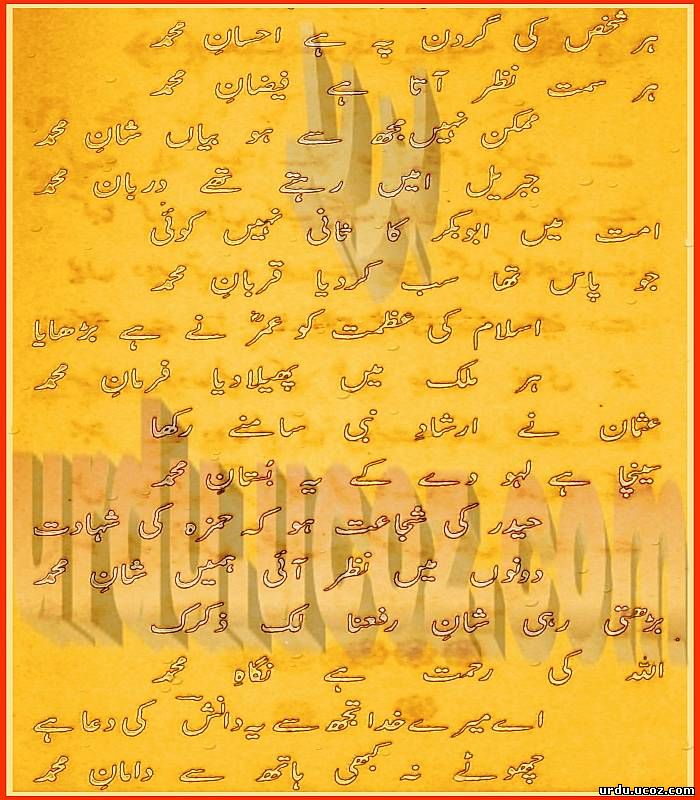 ہر شخص کی گردن پہ ہے احسانِ محمد
ہر سمت نظر آتا ہے فیضانِ محمد
ممکن نہیں مجھ سے ہو بیاں شانِ محمد
جبریل امیں رہتے تھے دربان محمد
امت میں ابوبکر کا ثانی نہیں کوئی
جو پاس تھا سب کردیا قربانِ محمد
اسلام کی عظمت کو عمرؓ نے ہے بڑھایا
ہر ملک میں پھیلادیا فرمانِ محمد
عثمان نے ارشادِ نبی سامنے رکھا
سینچا ہے لہو دے کے یہ بُستانِ محمد
حیدر کی شجاعت ہو کہ حمزہ کی شہادت
دونوں میں نظر آئی ہمیں شانِ محمد
بڑھتی رہی شانِ رفعنا لک ذکرک
اللہ کی رحمت ہے نگاہِ محمد
اے میرے خدا تجھ سے یہ دانش کی دعا ہے
چھوٹے نہ کبھی ہاتھ سے دامانِ محمد
اردو
urdu.ucoz.com
urdu.ucoz.com